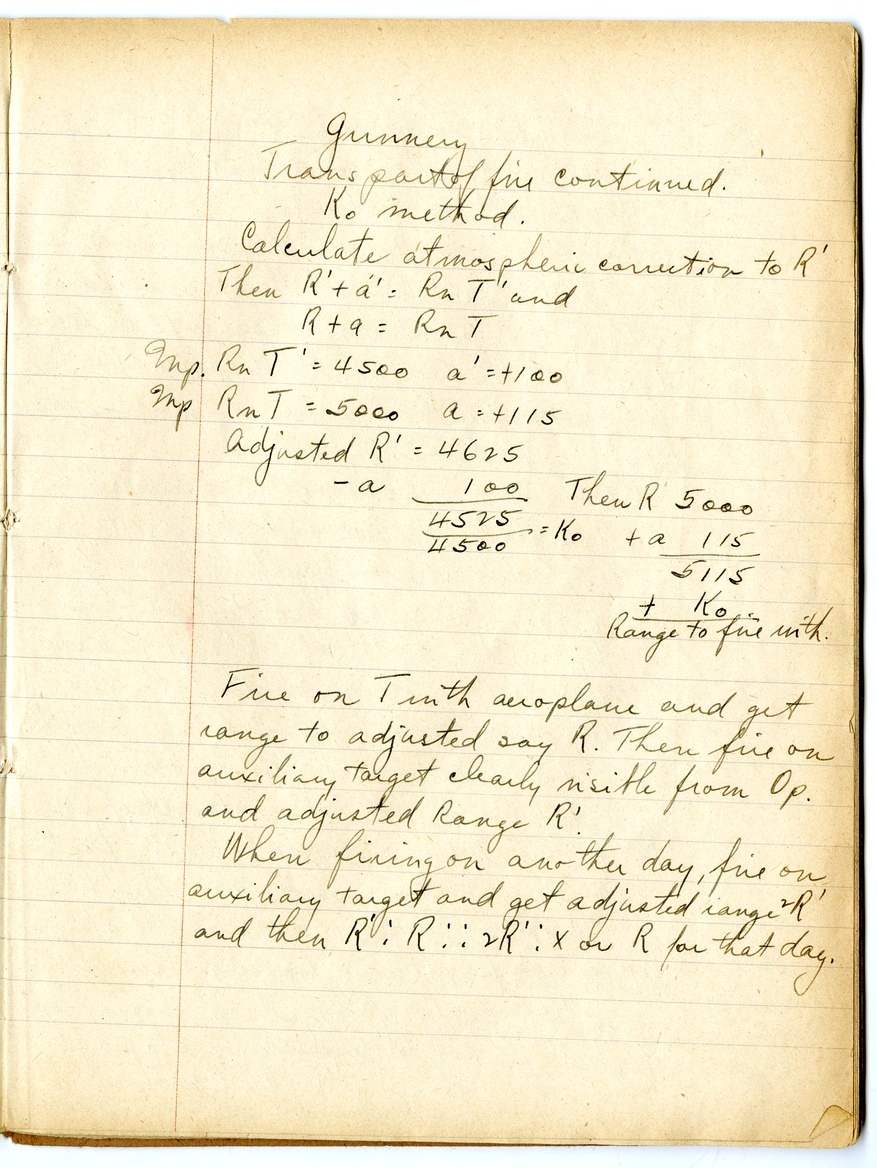 Gunnery
Transport of fire continued.
Ko method.
Calculate atmospheric correction to R'
Then R' + a' = Rn T' and
R + a = Rn T
Mp. Rn T' = 4500 a' = +100
Mp Rn T = 5000 a = +115
Adjusted R' = 4625
- a 100 Then R 5000
4525 = Ko + a 115
4500 5115
+ Ko
Range to fire with.
Fire on T with aeroplane and get
range to adjusted say R. Then fire on
auxiliary target clearly visible from Op.
and adjusted Range R'.
When firing on another day, fire on
auxiliary target and get adjusted range 2R'
and then R' : R :: 2R' : X or R for that day.